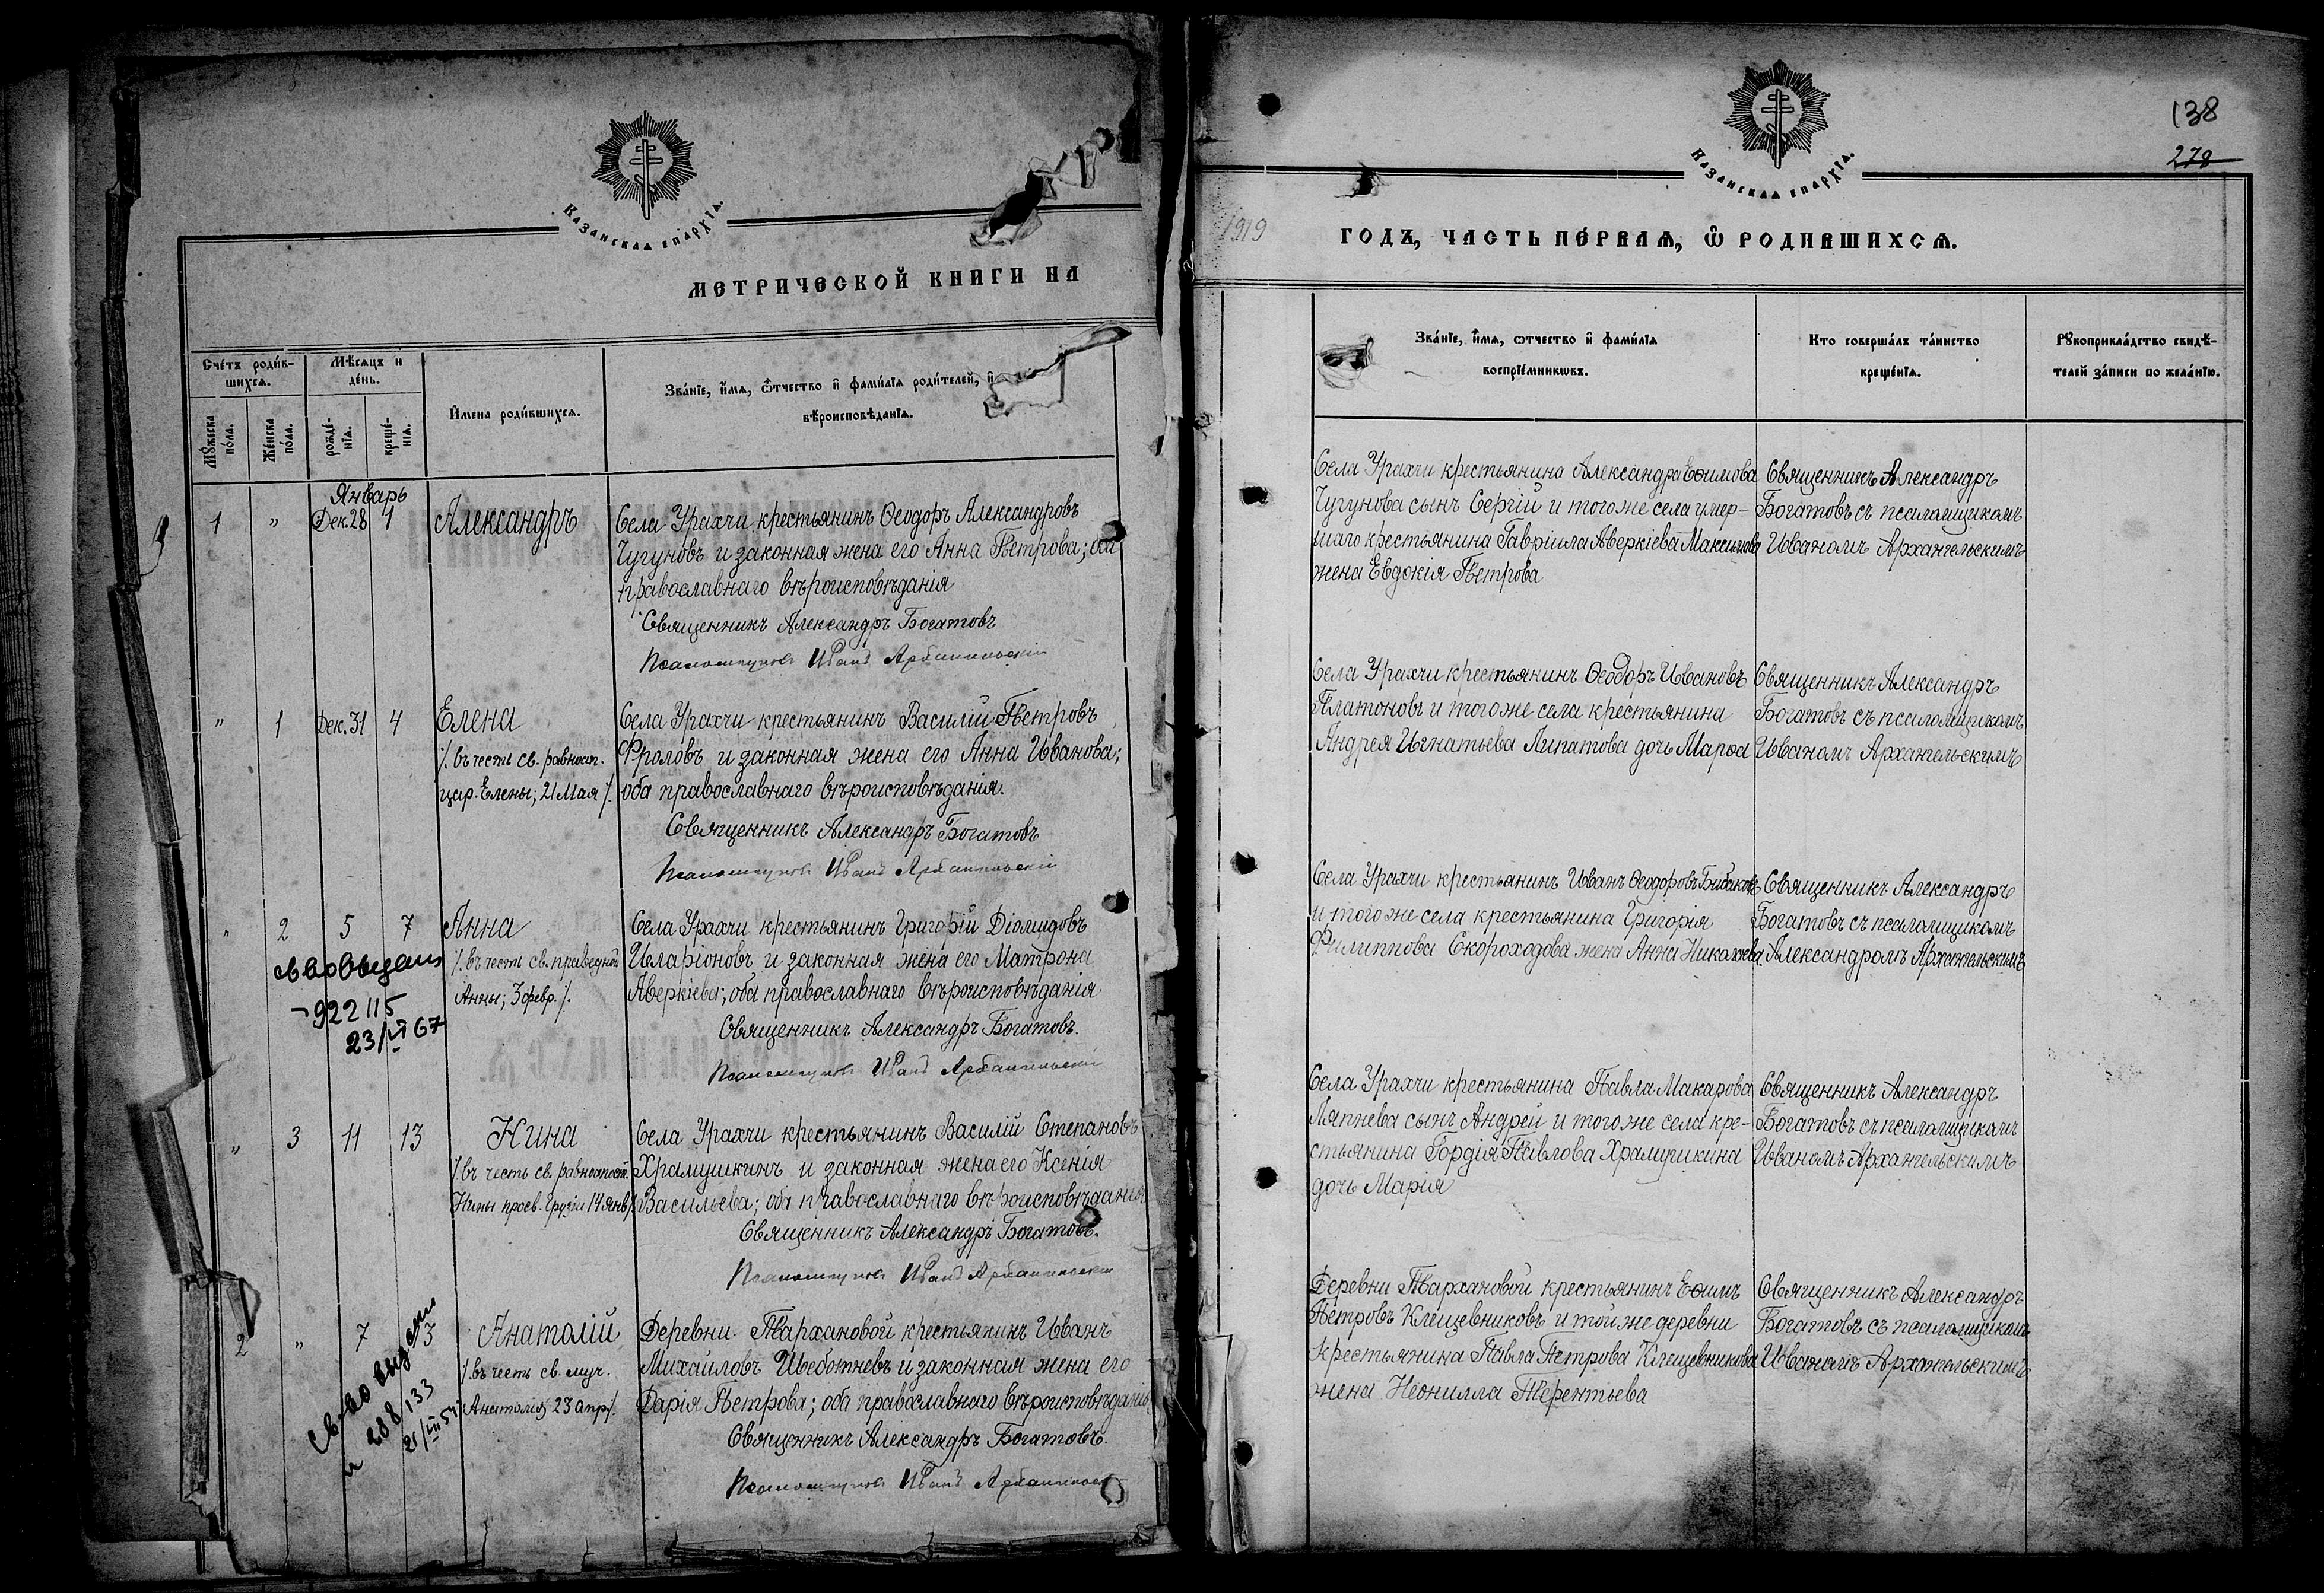 Казанская епархїя.
МЕТРИЧЕСКОЙ КНИГИ НА
Счетъ родив-
шихся.
Мѣсяцъ и
день.
Мꙋжеска
пола.
Женска
пола.
рожде-
нїя.
креще-
нїя.
Имена родившихся.
Званїе, имя, ѿчество и фамилїя родителей, и
вѣроисповѣданїя.
Январь
1 " Дек.28 1 Александръ
Села Урахчи крестьянинъ Ѳеодоръ Александровъ
Чугуновъ и законная жена его Анна Петрова; оба
православнаго вѣроисповѣданія
Священникъ Александръ Богатовъ
Псаломщикъ Иванъ Архангельскій
" 1 Дек.31 4 Елена
/. въ честь св. равноап.
цар. Елены; 21 Мая /.
Села Урахчи крестьянинъ Василій Петровъ
Фроловъ и законная жена его Анна Иванова;
оба православнаго вѣроисповѣданія.
Священникъ Александръ Богатовъ
Псаломщикъ Иванъ Архангельскій
" 2 5 7 Анна
/. въ честь св. праведной
Анны; 3 февр. /.
св-во выдано
922115
23/VI 67
Села Урахчи крестьянинъ Григорій Діомидовъ
Иларіоновъ и законная жена его Матрона
Аверкіева; оба православнаго вѣроисповѣданія
Священникъ Александръ Богатовъ.
Псаломщикъ Иванъ Архангельскій
" 3 11 13 Нина
/. въ честь св. равноапост.
Нины просв. Грузіи 14 янв /.
Села Урахчи крестьянинъ Василій Степановъ
Храмушкинъ и законная жена его Ксенія
Васильева; оба православнаго вѣроисповѣданія
Священникъ Александръ Богатовъ.
Псаломщикъ Иванъ Архангельскій
2 " 7 Анатолій
/. въ честь св. муч.
Анатолія 23 апр /.
св-во выдано
288133
Деревни Тархановой крестьянинъ Иванъ
Михайловъ и законная жена его
Дарія Петрова; оба православнаго вѣроисповѣданія
Священникъ Александръ Богатовъ.
Псаломщикъ Иванъ Архангельскій
138
278
Казанская епархїя.
1919 ГОДЪ, ЧАСТЬ ПЕРВАЯ, Ѡ РОДИВШИХСЯ.
Званїе, имя, ѿчество и фамилїя
воспрїемникѡвъ.
Кто совершалъ таинство
крещенїя.
Рꙋкоприкладство свидѣ-
телей записи по желанїю.
Села Урахчи крестьянина Александра Еѳимова
Чугунова сынъ Сергій и того же села умер-
шаго крестьянина Гавріила Аверкіева Максимова
жена Евдокія Петрова
Священникъ Александръ
Богатовъ съ псаломщикомъ
Иваномъ Архангельскимъ
Села Урахчи крестьянинъ Ѳеодоръ Ивановъ
Платоновъ и того же села крестьянина
Андрея Игнатьева Липатова дочь Марѳа
Священникъ Александръ
Богатовъ съ псаломщикомъ
Иваномъ Архангельскимъ
Села Урахчи крестьянинъ Иванъ Ѳеодоровъ Бибиковъ
и того же села крестьянина Григорія
Филиппова Скороходова жена Анна Николаева.
Священникъ Александръ
Богатовъ съ псаломщикомъ
Александромъ Архангельскимъ
Села Урахчи крестьянина Павла Макарова
Ляпнева сынъ Андрей и того же села кре-
стьянина Гордія Павлова Храмушкина
дочь Марія
Священникъ Александръ
Богатовъ съ псаломщикомъ
Иваномъ Архангельскимъ
Деревни Тархановой крестьянинъ Еѳимъ
Петровъ Клещевниковъ и той же деревни
крестьянина Павла Петрова Клещевникова
жена Неонилла Терентьева
Священникъ Александръ
Богатовъ съ псаломщикомъ
Иваномъ Архангельскимъ